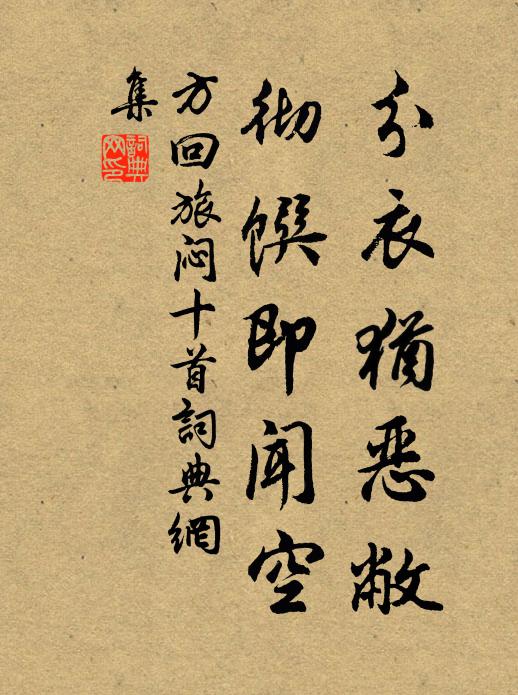 分衣犹恶敝
彻馔即闻空
方回旅闷十首詞典網
集
詞典
网印